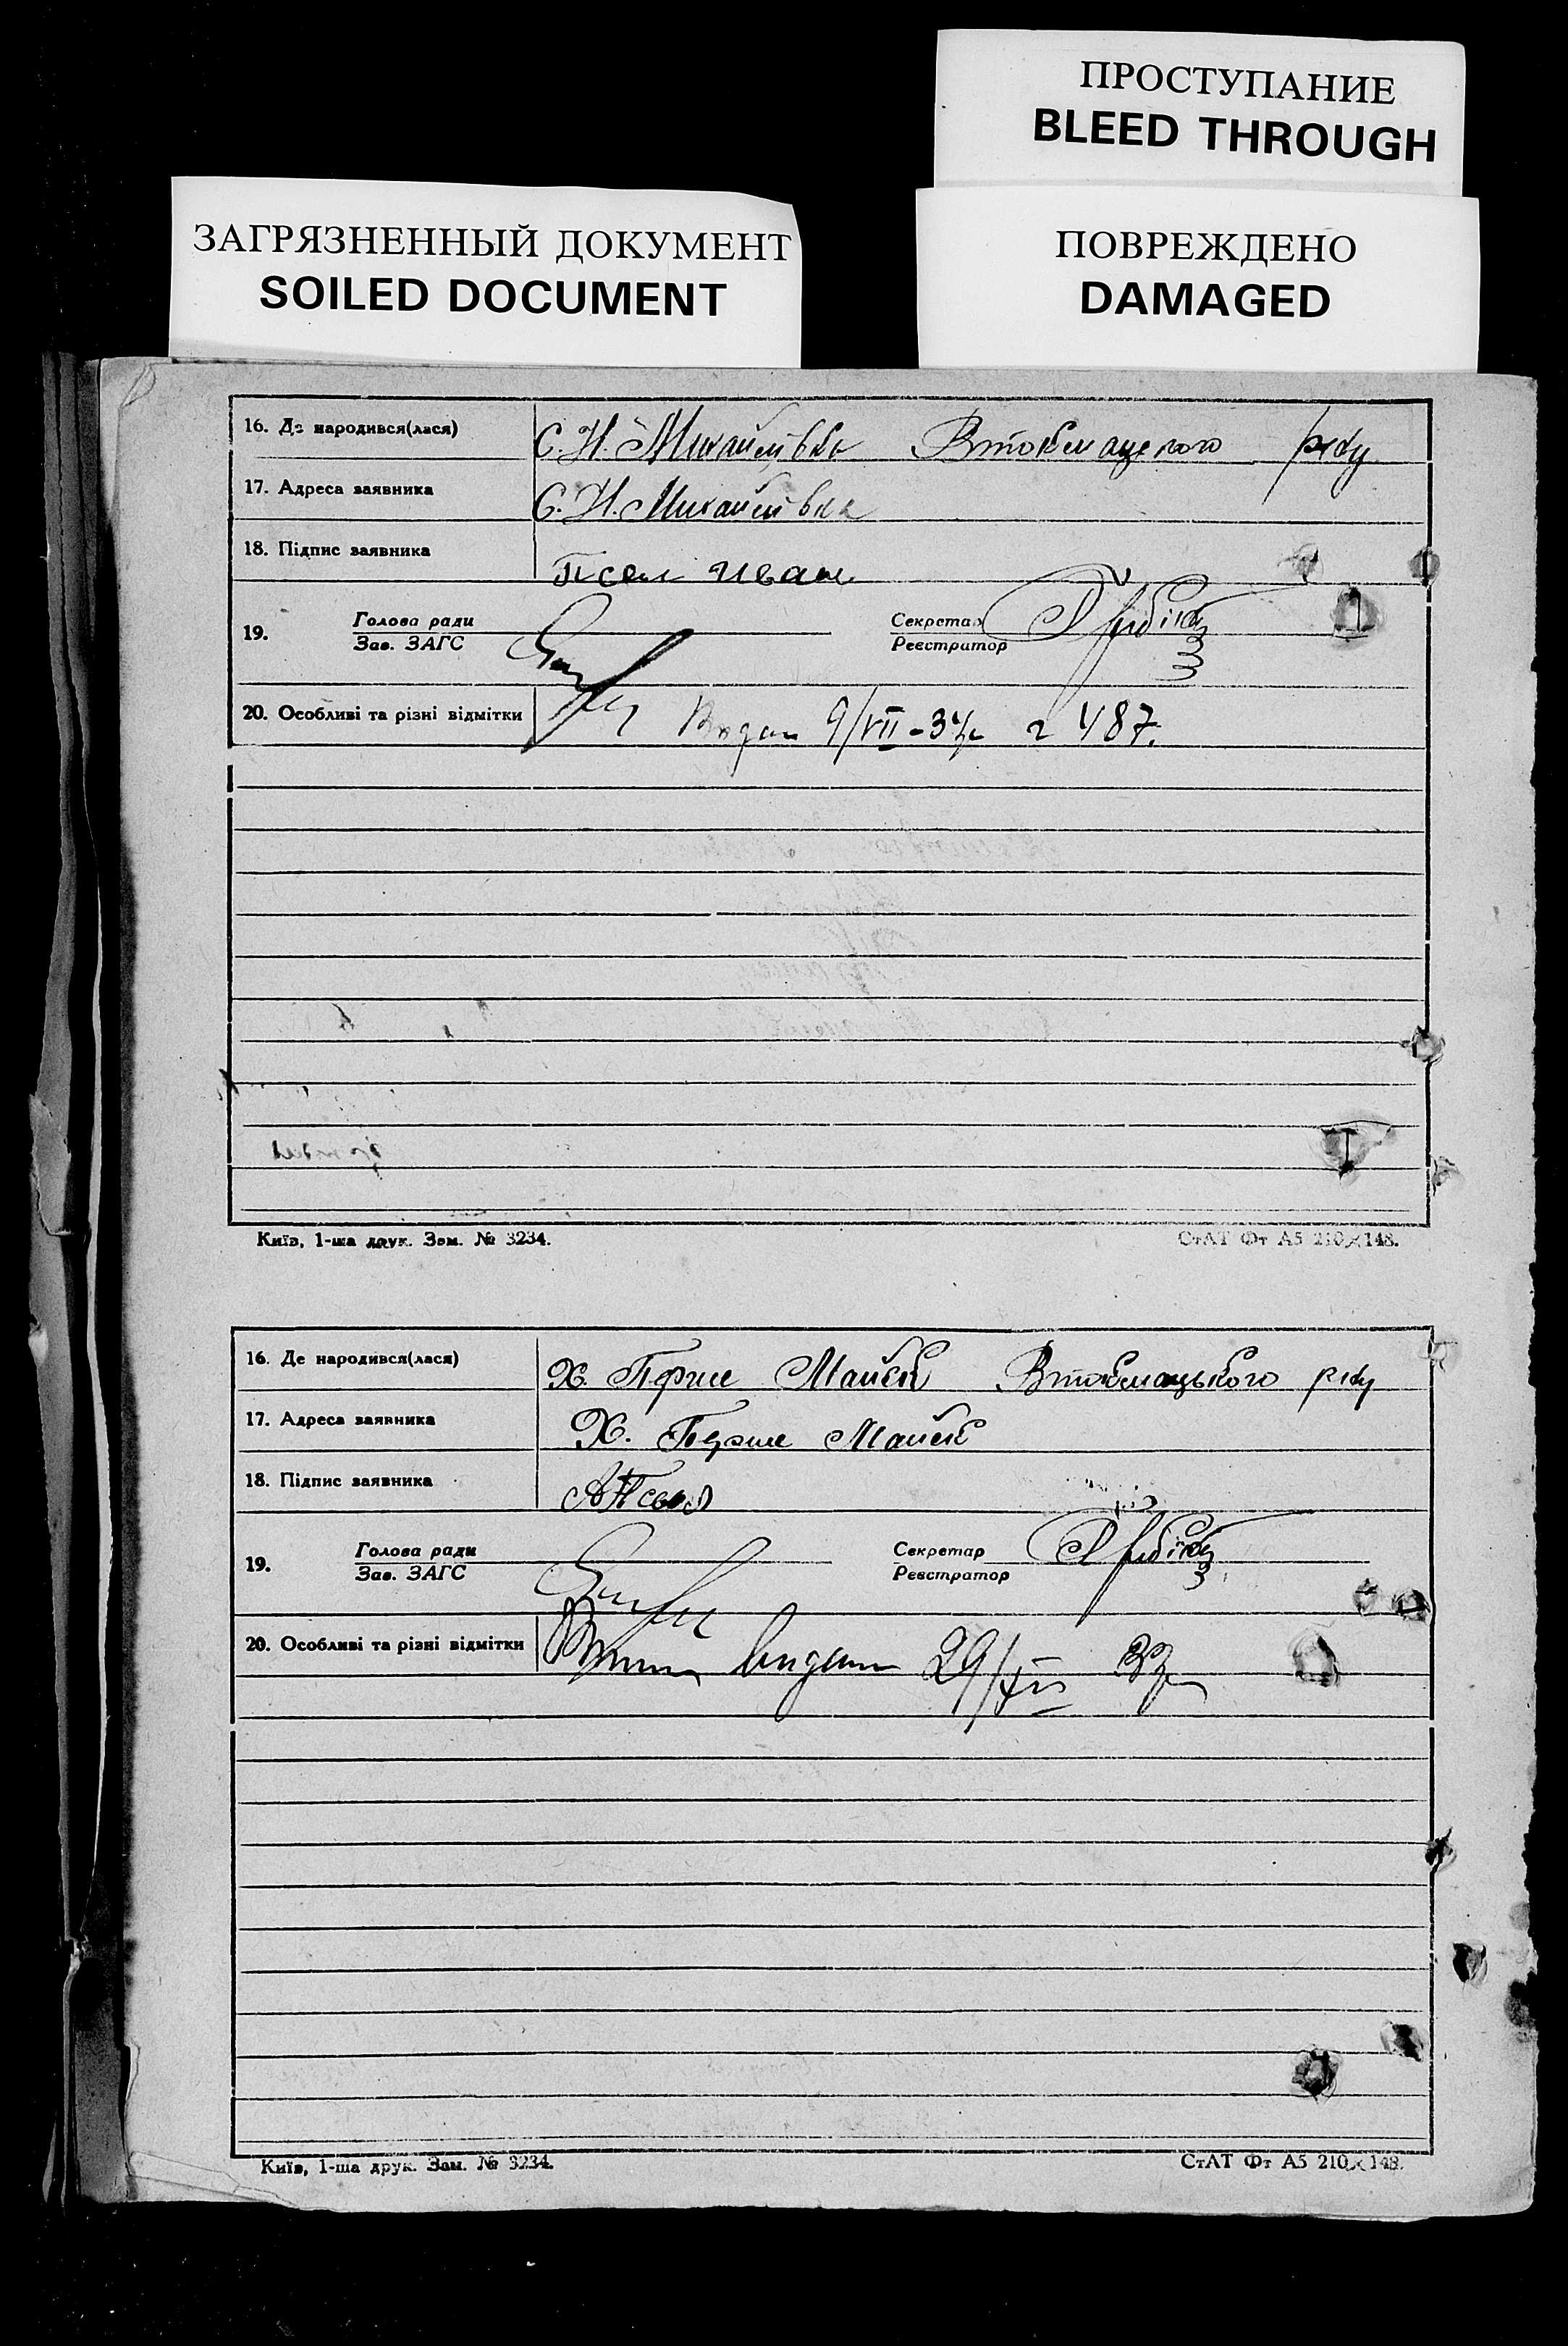 ПРОСТУПАНИЕ
BLEED THROUGH
ЗАГРЯЗНЕННЫЙ ДОКУМЕНТ
SOILED DOCUMENT
ПОВРЕЖДЕНО
DAMAGED
16. Де народився(лася) С. Н. Михайлівка Втокмацького р-ну
17. Адреса заявника С. Н. Михайлівка
18. Підпис заявника Псел Иван
19. Голова ради Секретар
Зав. ЗАГС Реєстратор
20. Особливі та різні відмітки 9/VII-34р 487.
Київ, 1-ша друк. Зам. № 3234. СтАТ Фт А5 210×148.
16. Де народився(лася) Х. Перше Майск Втокмацького р-ну
17. Адреса заявника Х. Перше Майск
18. Підпис заявника
19. Голова ради Секретар
Зав. ЗАГС Реєстратор
20. Особливі та різні відмітки видан 29/
Київ, 1-ша друк. Зам. № 3234. СтАТ Фт А5 210×148.